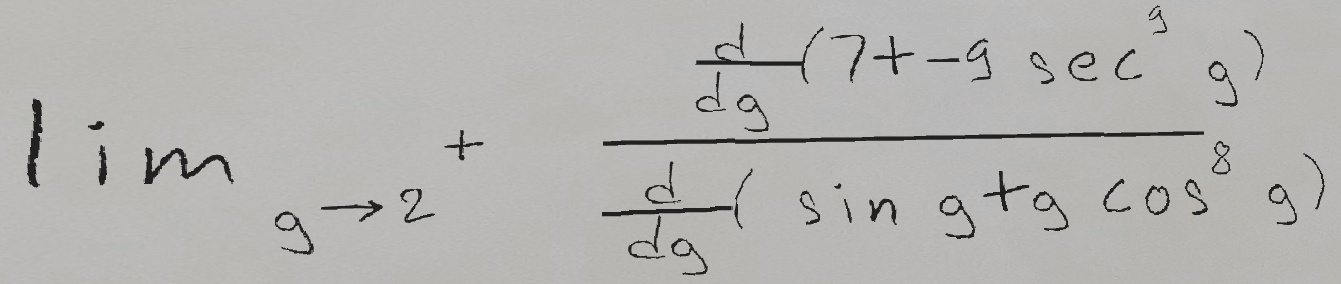 \lim_{g \to 2^+} \frac{\frac{d}{dg}(7+-9 \sec^9 g)}{\frac{d}{dg}(\sin g+g \cos^8 g)}